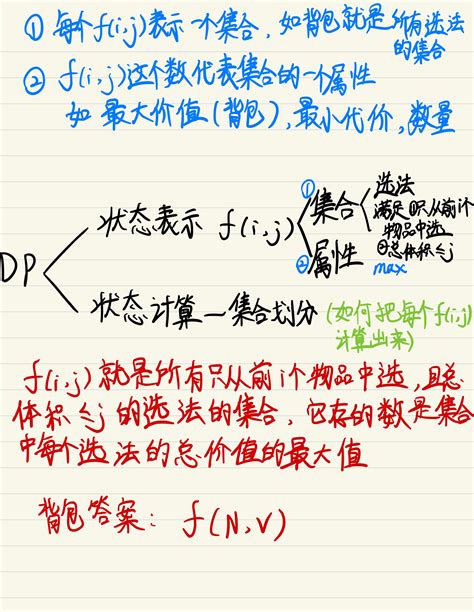 ① 每个f(i,j)表示一个集合, 如背包就是所有选法
的集合
② f(i,j)这个数代表集合的一个属性
如 最大价值(背包), 最小代价, 数量
DP
状态表示 f(i,j)
① 集合
选法
满足 ①只从前i个
物品中选
②总体积≤j
② 属性 max
状态计算—集合划分 (如何把每个f(i,j)
计算出来)
f(i,j)就是所有只从前i个物品中选, 且总
体积≤j的选法的集合, 它存的数是集合
中每个选法的总价值的最大值
背包答案: f(N,V)